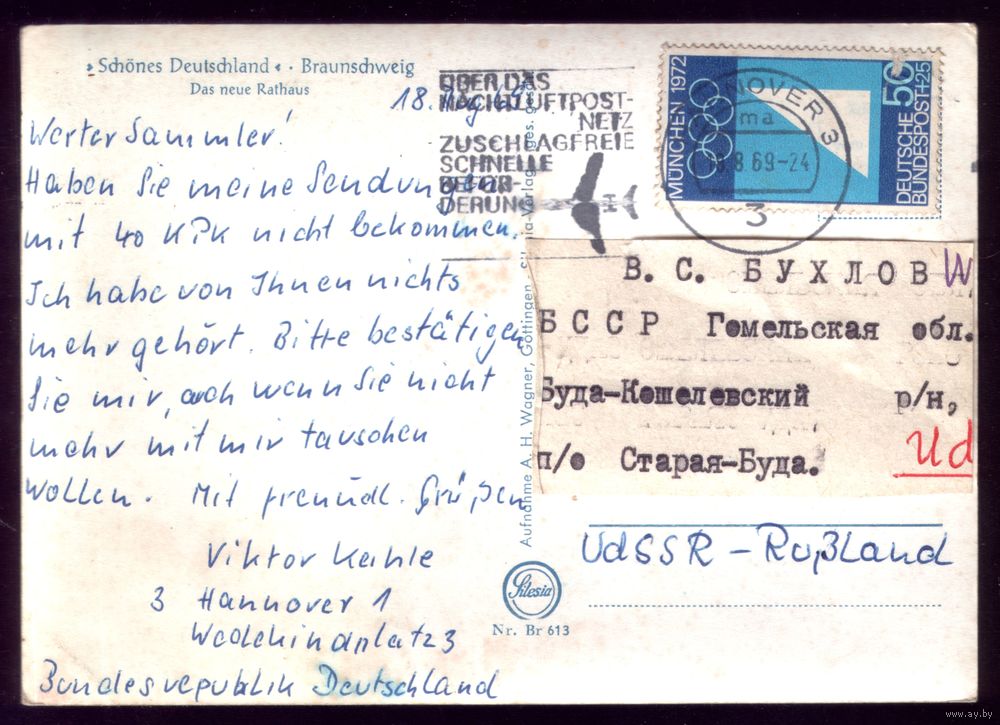 »Schönes Deutschland« · Braunschweig
Das neue Rathaus
18. Aug
Werter Sammler!
Haben Sie meine Sendungen
mit 40 KPK nicht bekommen.
Ich habe von Ihnen nichts
mehr gehört. Bitte bestätigen
Sie mir, auch wenn Sie nicht
mehr mit mir tauschen
wollen. Mit freundl. Grüßen
Viktor Kahle
3 Hannover 1
Wedekindplatz 3
Bundesrepublik Deutschland
ÜBER DAS
NACHTLUFTPOST-
NETZ
ZUSCHLAGFREIE
SCHNELLE
BEFÖR-
DERUNG
HANNOVER 3
ma
8.69-24
3
MÜNCHEN 1972
DEUTSCHE
BUNDESPOST
50+25
Aufnahme A. H. Wagner, Göttingen
В. С. БУХЛОВ
БССР Гомельская обл.
Буда-Кошелевский р/н,
п/о Старая-Буда.
Ud
UdSSR - Rußland
Silesia
Nr. Br 613
www.ay.by